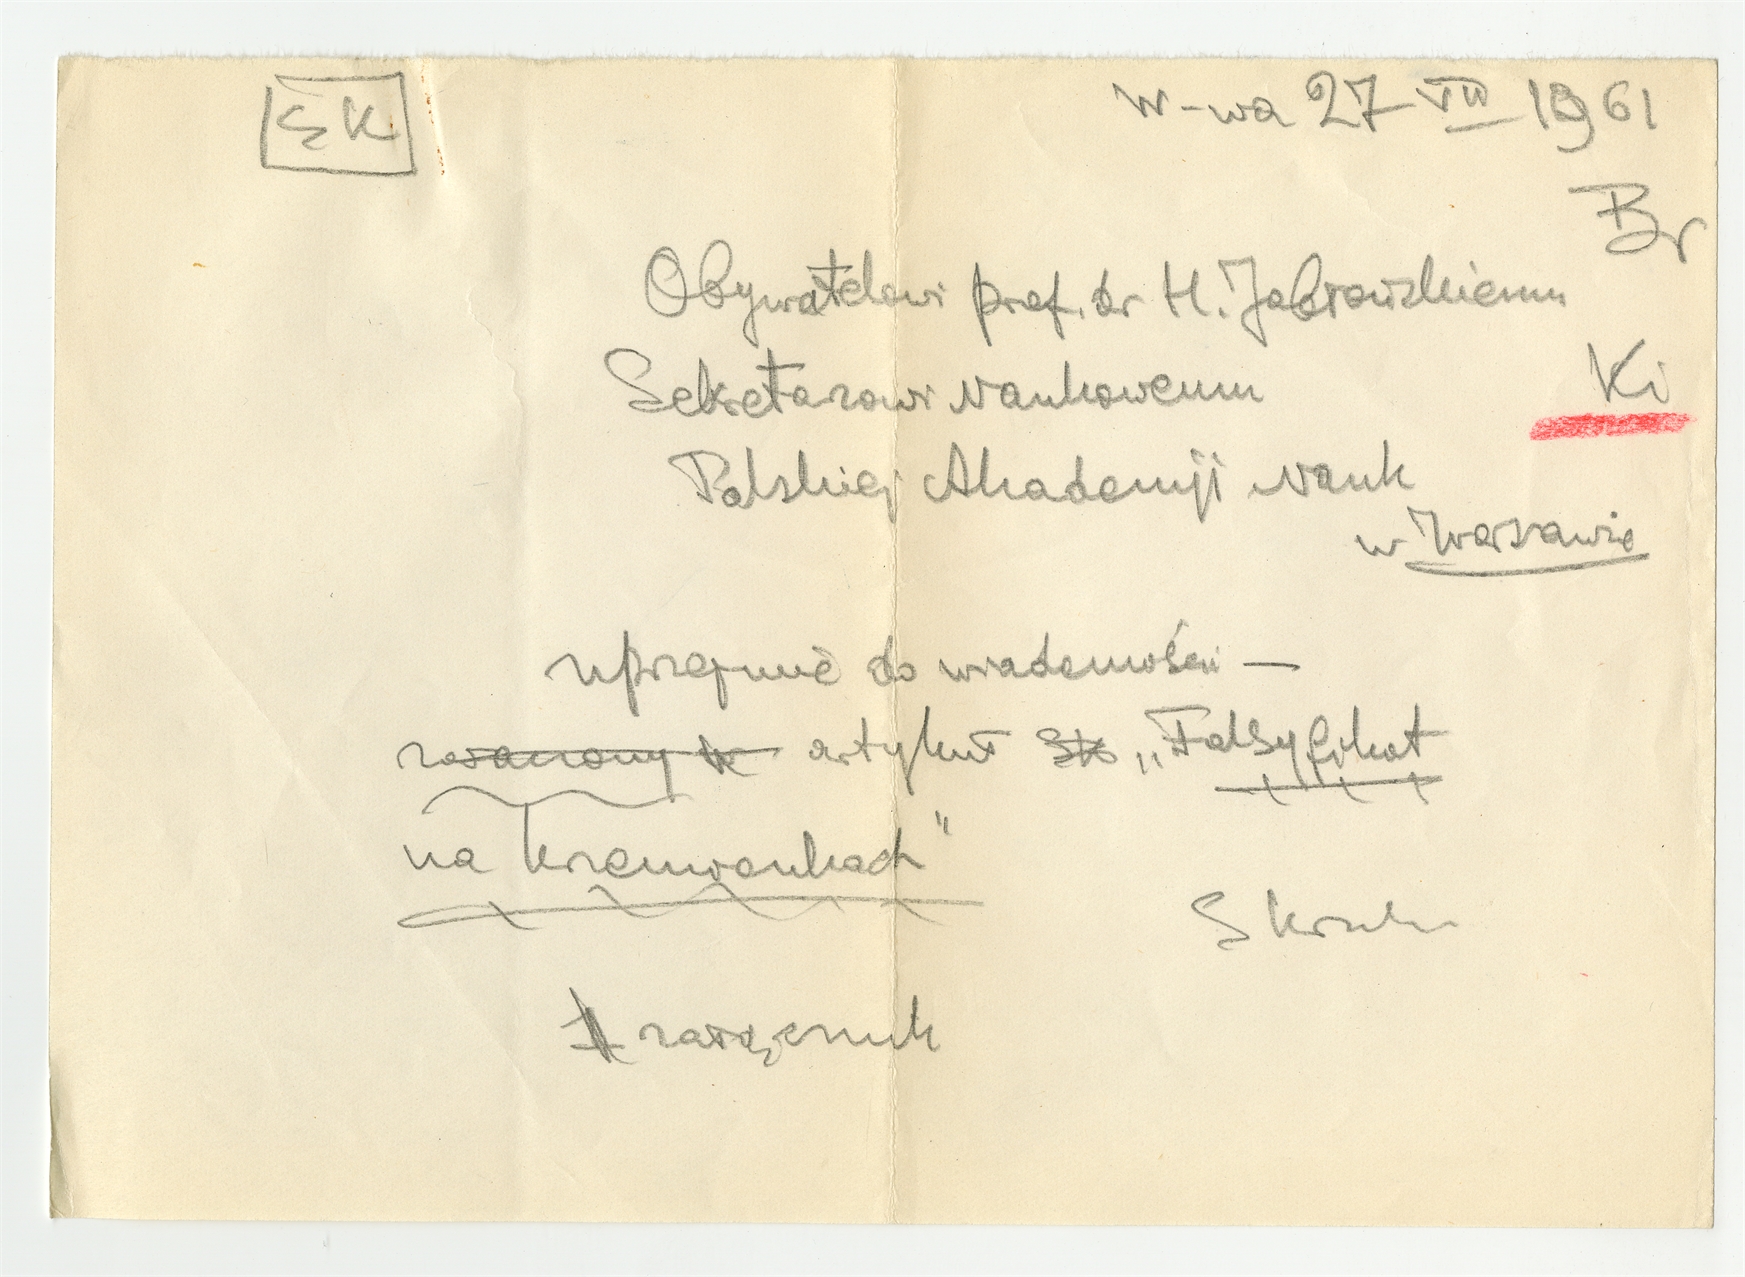 SK
W-wa 27 VII 1961
Br
Obywatelowi prof. dr H. Jabłońskiemu
Sekretarzowi Naukowemu
Ki
Polskiej Akademji Nauk
w Warszawie
uprzejmie do wiadomości —
artykuł „Falsyfikat
na Krzemionkach"
1 załącznik